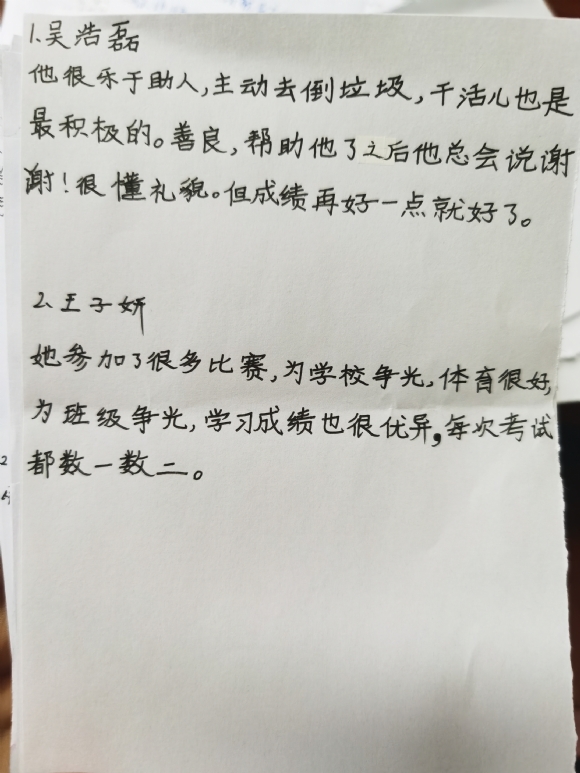 1.吴浩磊
他很乐于助人,主动去倒垃圾,干活儿也是
最积极的。善良,帮助他了之后他总会说谢
谢!很懂礼貌。但成绩再好一点就好了。
2.王子妍
她参加了很多比赛,为学校争光,体育很好,
为班级争光,学习成绩也很优异,每次考试
都数一数二。